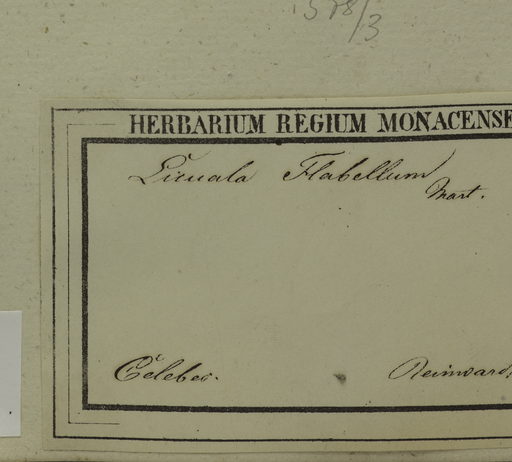 1578/3
HERBARIUM REGIUM MONACENSE
Licuala Flabellum
Mart.
Celebes.
Reinward